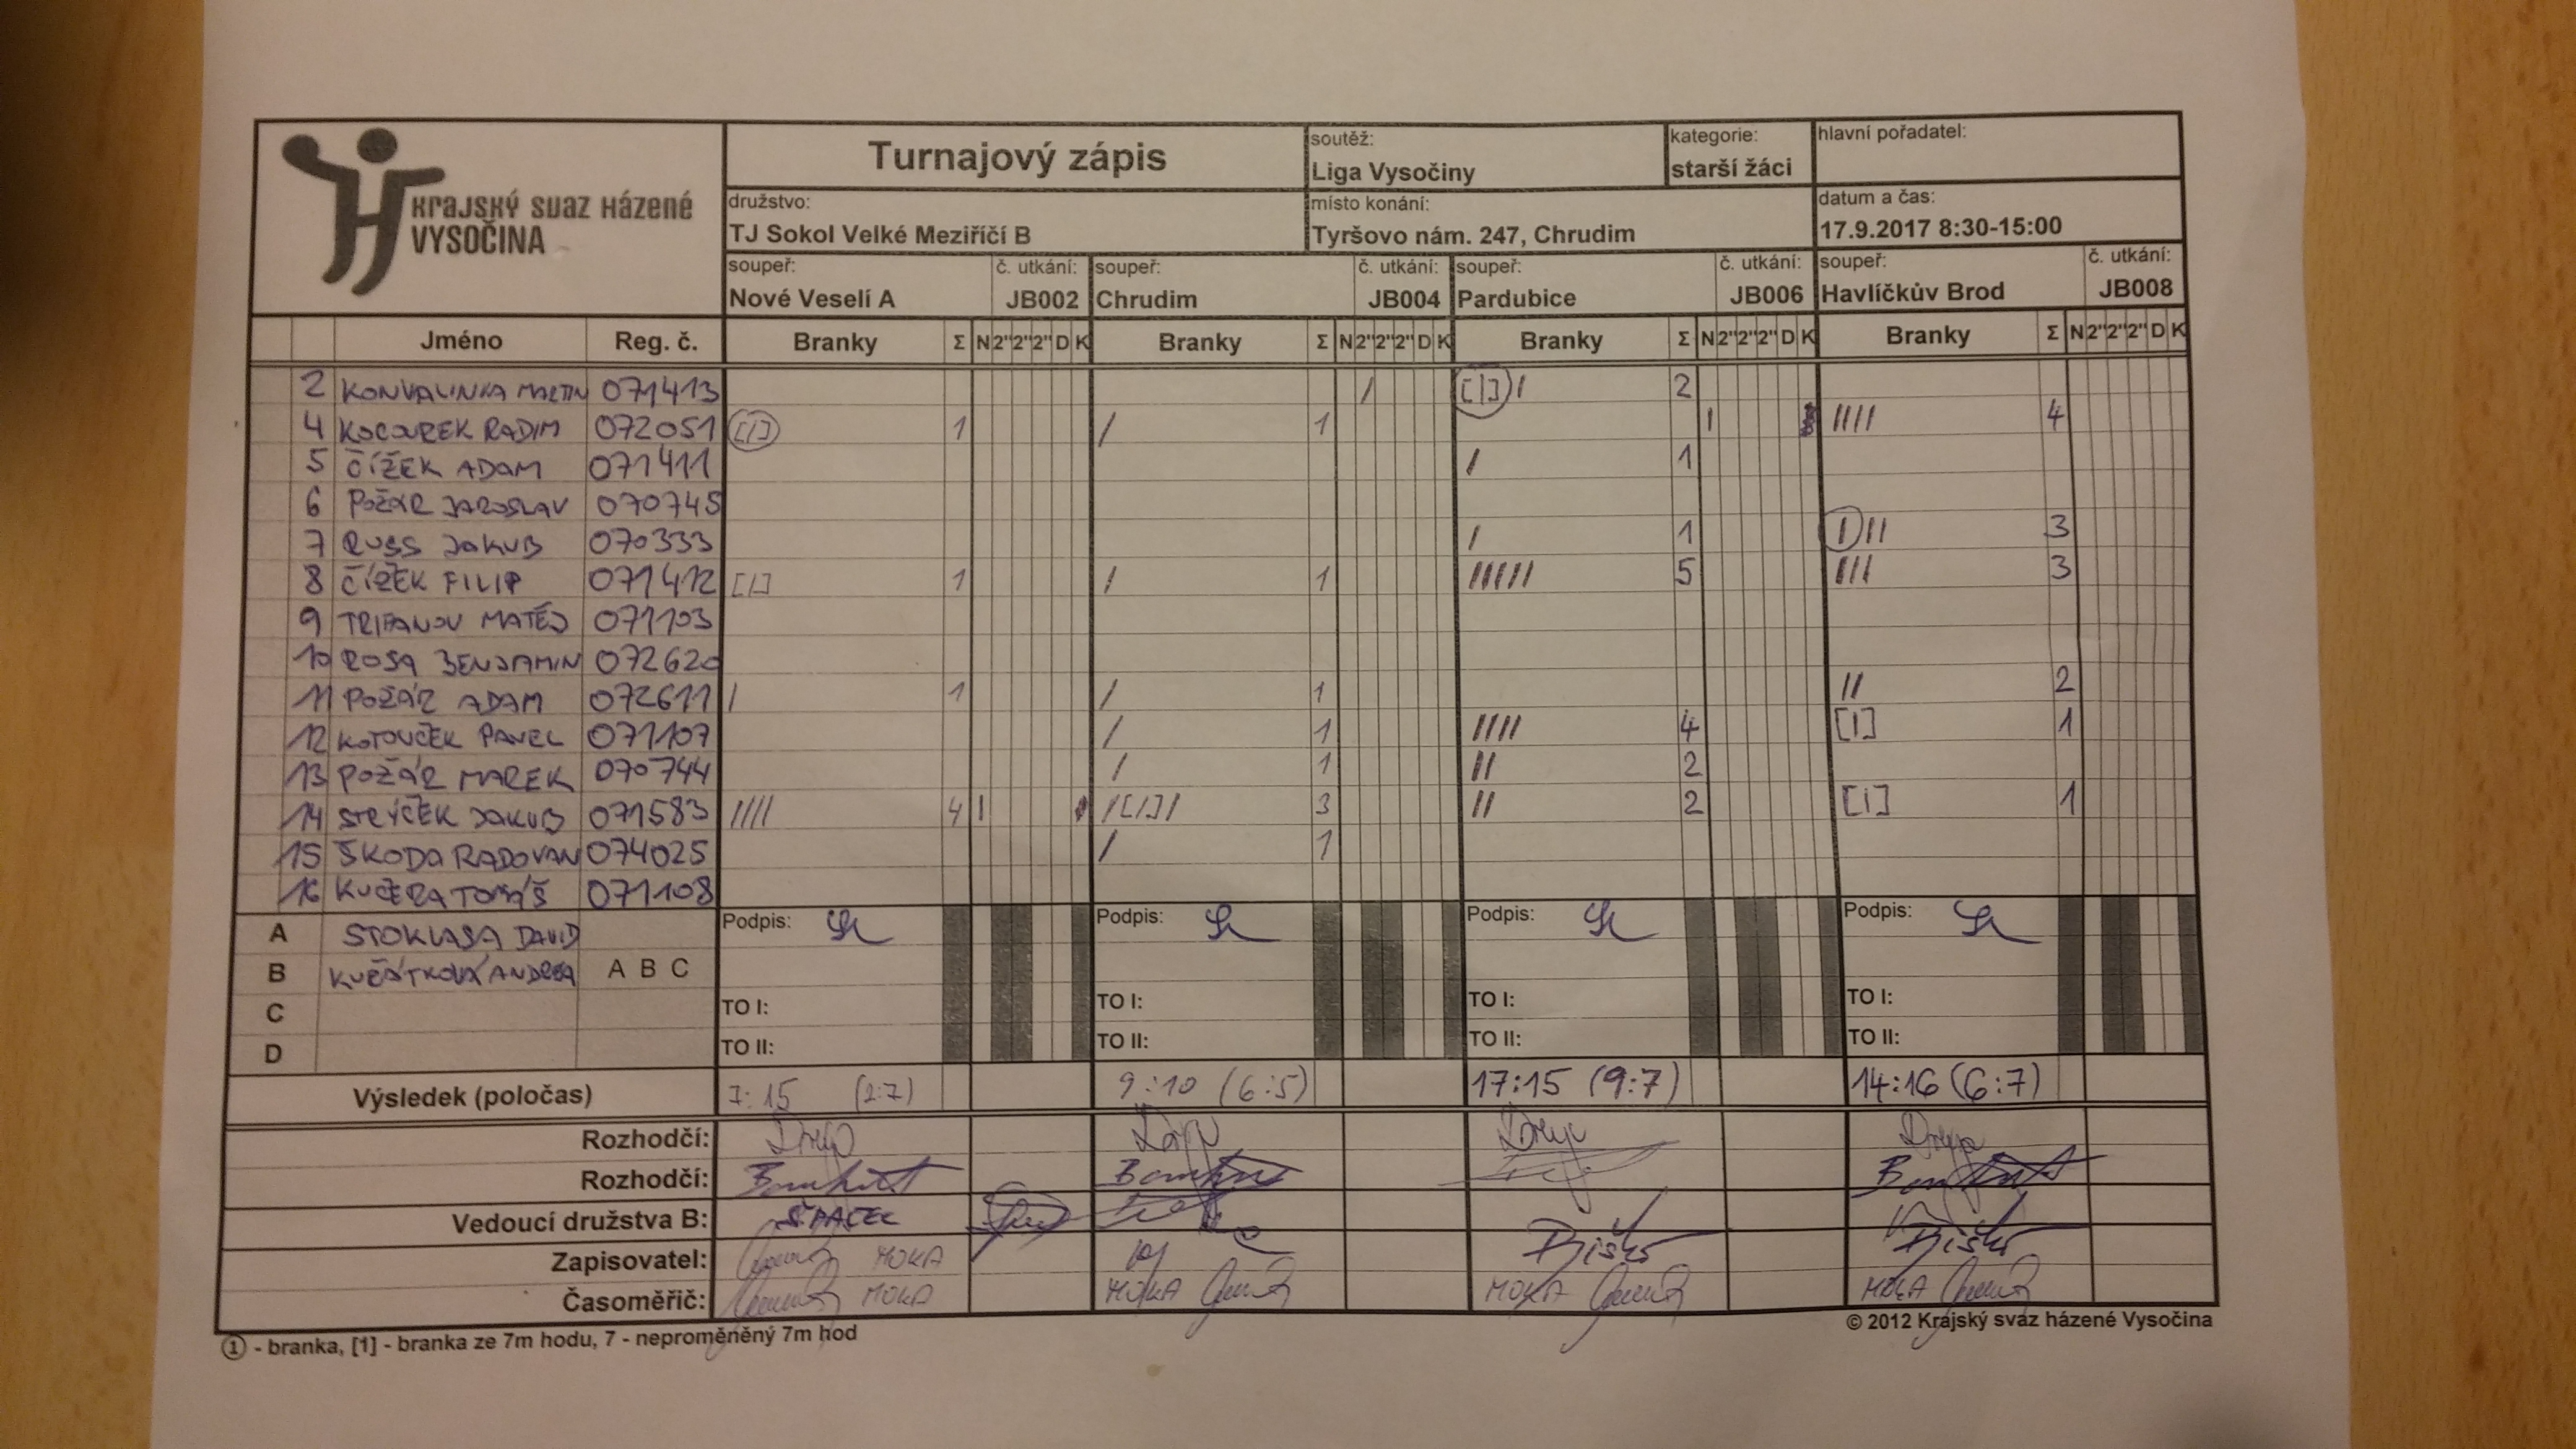 KRAJSKÝ SVAZ HÁZENÉ
VYSOČINA
Turnajový zápis
soutěž:
Liga Vysočiny
kategorie:
starší žáci
hlavní pořadatel:
družstvo:
TJ Sokol Velké Meziříčí B
místo konání:
Tyršovo nám. 247, Chrudim
datum a čas:
17.9.2017 8:30-15:00
soupeř: č. utkání: soupeř: č. utkání: soupeř: č. utkání: soupeř: č. utkání:
Nové Veselí A JB002 Chrudim JB004 Pardubice JB006 Havlíčkův Brod JB008
Jméno Reg. č. Branky Σ N 2" 2" 2" D K Branky Σ N 2" 2" 2" D K Branky Σ N 2" 2" 2" D K Branky Σ N 2" 2" 2" D K
2 KONVALINKA MARTIN 071413 / [1] / 2
4 KOCOUREK RADIM 072051 [1] 1 / 1 | //// 4
5 ČÍŽEK ADAM 071411 / 1
6 POŽÁR JAROSLAV 070745
7 RUSS JAKUB 070333 / 1 1 // 3
8 ČÍŽEK FILIP 071412 [1] 1 / 1 ///// 5 /// 3
9 TRIFANOV MATĚJ 071103
10 ROSA BENJAMIN 072620
11 POŽÁR ADAM 072611 / 1 / 1 // 2
12 KOTOUČEK PAVEL 071107 / 1 //// 4 [1] 1
13 POŽÁR MAREK 070744 / 1 // 2
14 STRÝČEK JAKUB 071583 //// 4 | / [1] / 3 // 2 [1] 1
15 ŠKODA RADOVAN 074025 / 1
16 KUČERA TOMÁŠ 071108
A STOKLASA DAVID Podpis: Podpis: Podpis: Podpis:
B KUČÁTKOVÁ ANDREA A B C
C TO I: TO I: TO I: TO I:
D TO II: TO II: TO II: TO II:
Výsledek (poločas) 7:15 (2:7) 9:10 (6:5) 17:15 (9:7) 14:16 (6:7)
Rozhodčí:
Rozhodčí:
Vedoucí družstva B: ŠPAČEK
Zapisovatel: MOKA
Časoměřič: MOKA MOKA MOKA MOKA
① - branka, [1] - branka ze 7m hodu, 7 - neproměněný 7m hod
© 2012 Krajský svaz házené Vysočina